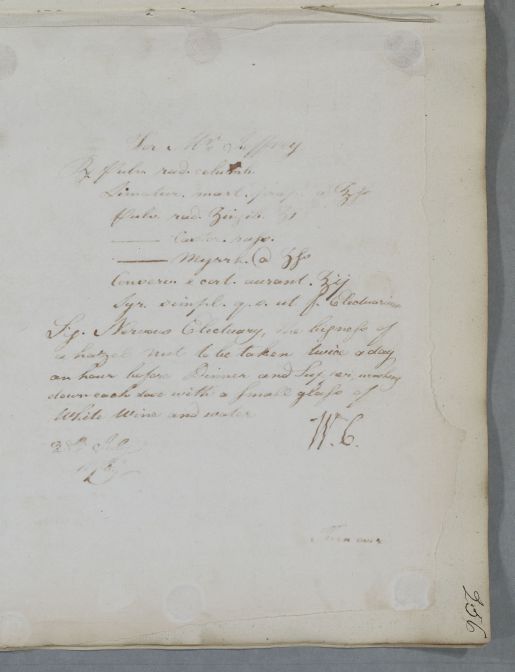 For Mr. Jeffrey
℞ Pulv. rad. columb.
Limatur. mart. prep. a ʒfs
Pulv. rad. Zingib. ʒi
—— Castor. rufs.
—— Myrrh. @ ʒfs
Conserv. e cort. aurant. ʒij
Syr. simpl. q.s. ut f. Electuarium
Sig. Nervous Electuary, the bigness of
a hazel nut to be taken twice a day,
an hour before Dinner and Supper, washing
down each dose with a small glass of
White Wine and water
W. C.
July
Turn over
256